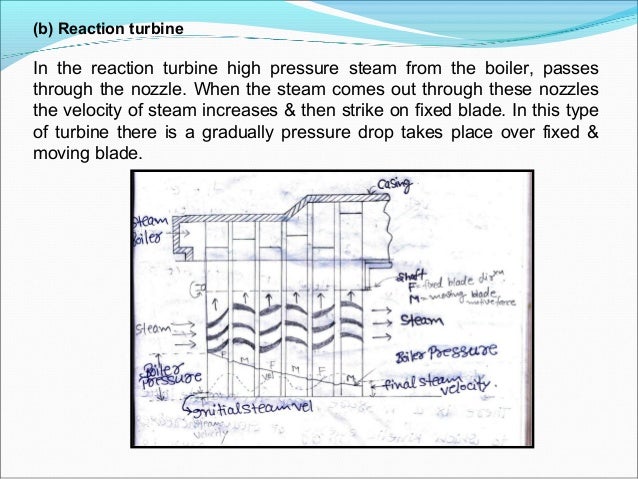 (b) Reaction turbine
In the reaction turbine high pressure steam from the boiler, passes
through the nozzle. When the steam comes out through these nozzles
the velocity of steam increases & then strike on fixed blade. In this type
of turbine there is a gradually pressure drop takes place over fixed &
moving blade.
Casing
Steam
Boiler
Shaft
F=fixed blade
M=moving blade
Steam
Steam
F
M
F
vel
M
F
M
Boiler Pressure
Boiler
Pressure
final steam
velocity.
initial steam vel